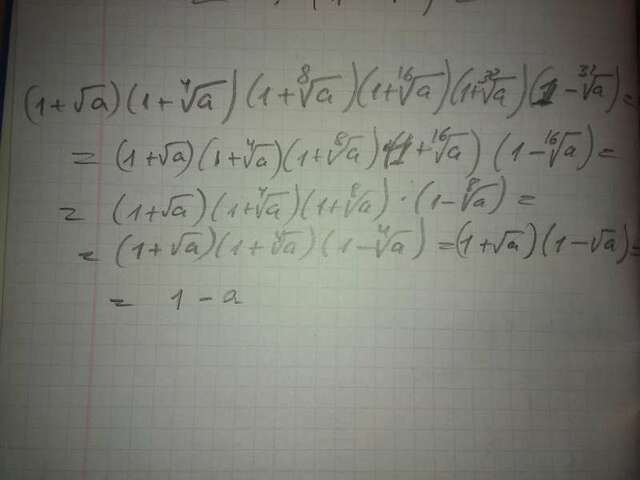 (1+√a)(1+⁴√a)(1+⁸√a)(1+¹⁶√a)(1+³²√a)(1-³²√a)=
=(1+√a)(1+⁴√a)(1+⁸√a)(1+¹⁶√a)(1-¹⁶√a)=
=(1+√a)(1+⁴√a)(1+⁸√a)·(1-⁸√a)=
=(1+√a)(1+⁴√a)(1-⁴√a)=(1+√a)(1-√a)=
= 1-a